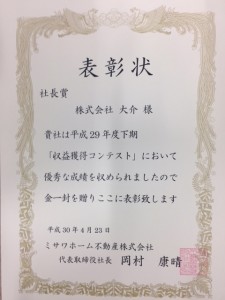 表彰状
社長賞
株式会社 大介 様
貴社は平成29年度下期
「収益獲得コンテスト」において
優秀な成績を収められましたので
金一封を贈りここに表彰致します
平成30年4月23日
ミサワホーム不動産株式会社
代表取締役社長 岡村 康晴